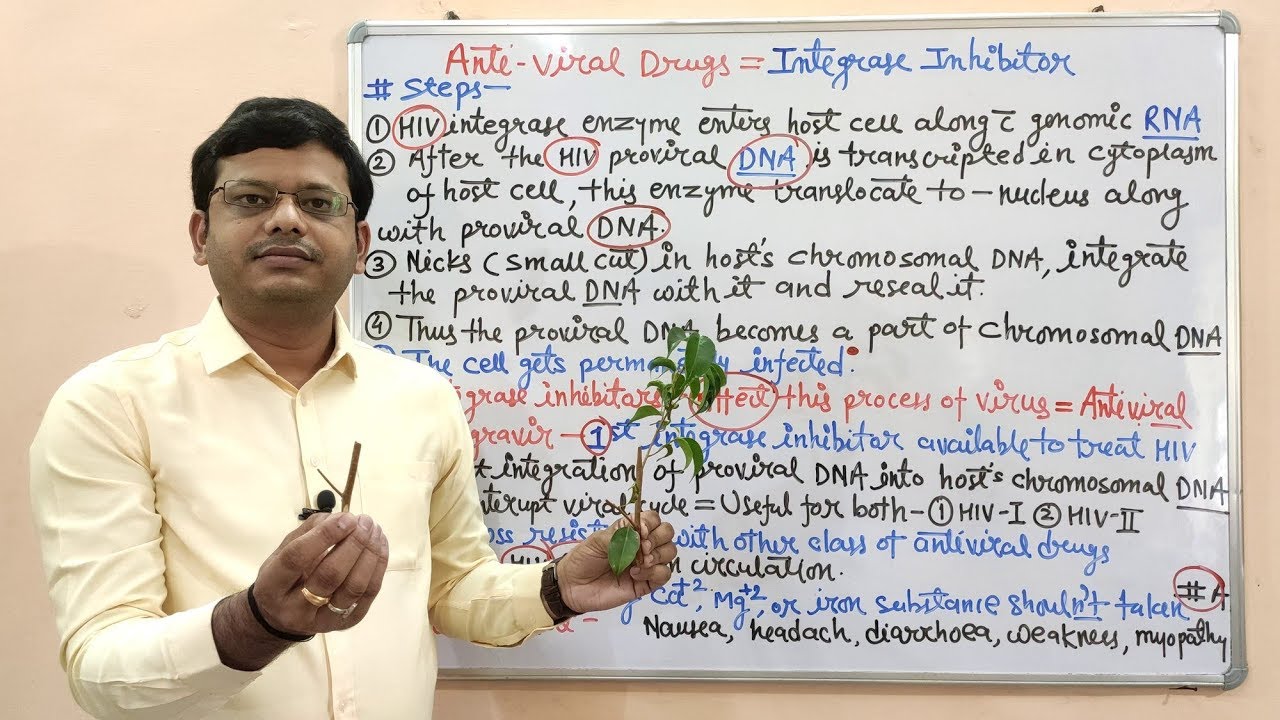 Anti-Viral Drugs = Integrase Inhibitor
# Steps-
① HIV integrase enzyme enters host cell along c̄ genomic RNA
② After the HIV proviral DNA is transcripted in cytoplasm
of host cell, this enzyme translocate to - nucleus along
with proviral DNA.
③ Nicks (small cut) in host's chromosomal DNA, integrate
the proviral DNA with it and reseal it.
④ Thus the proviral DNA becomes a part of chromosomal DNA
The cell gets infected.
inhibitors this process of virus = Antiviral
1st integrase inhibitor available to treat HIV
integration of proviral DNA into host's chromosomal DNA
viral cycle = Useful for both - ① HIV-I ② HIV-II
with other class of antiviral drugs
HIV circulation.
Mg+2, or iron substance shouldn't taken # A
Nausea, headach, diarrhoea, weakness, myopathy